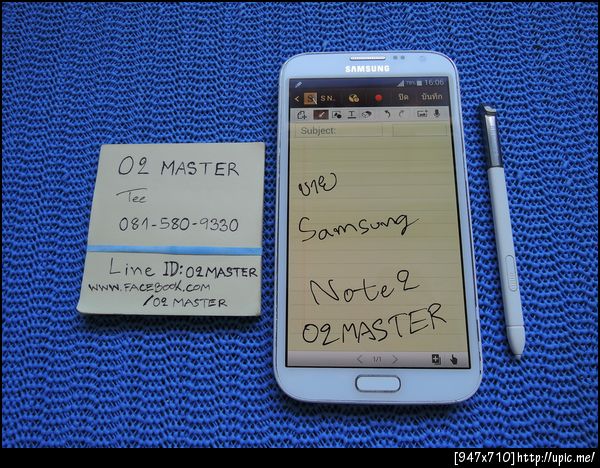 O2 MASTER
Tee
081-580-9330
Line ID: O2MASTER
WWW.FACEBOOK.COM
/O2 MASTER
SAMSUNG
78% 16:06
S N.
ปิด
บันทึก
Subject:
ขาย
Samsung
Note 2
O2MASTER
1/1
[947x710]http://upic.me/